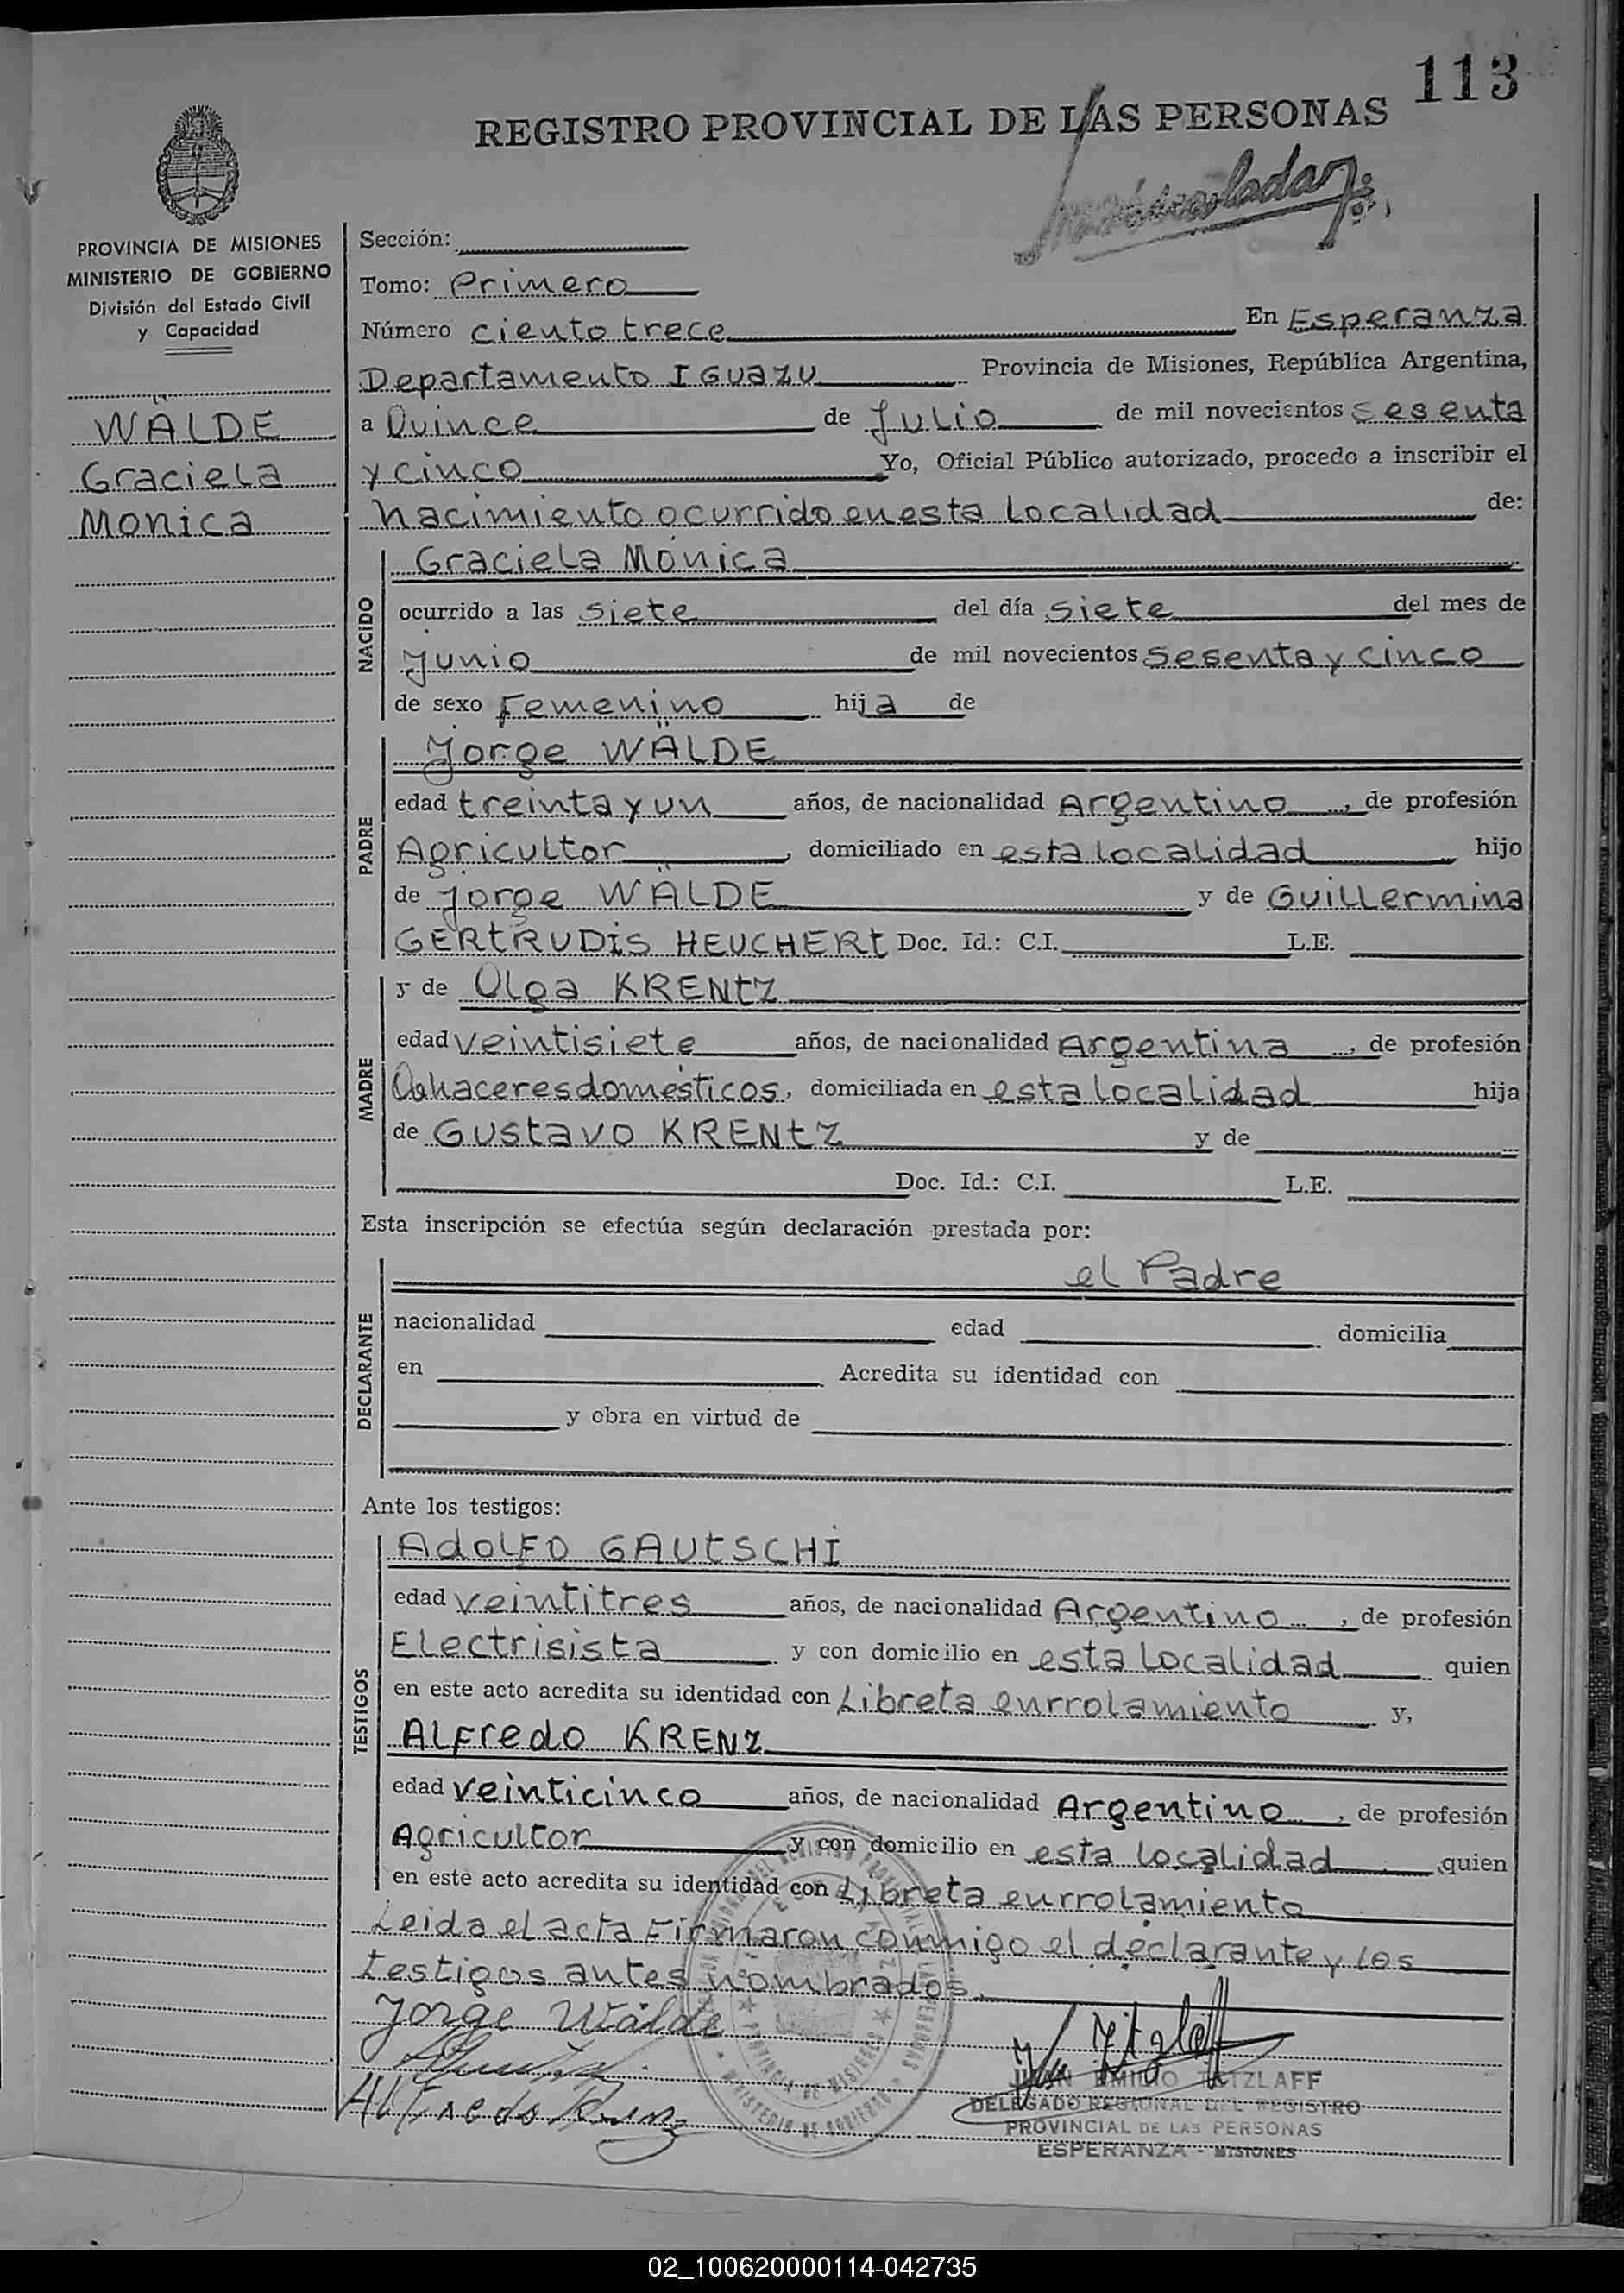 113
REGISTRO PROVINCIAL DE LAS PERSONAS
PROVINCIA DE MISIONES
MINISTERIO DE GOBIERNO
División del Estado Civil
y Capacidad
WÄLDE
Graciela
Monica
Sección:
Tomo: Primero
Número ciento trece En Esperanza
Departamento IGUAZU Provincia de Misiones, República Argentina,
a Quince de Julio de mil novecientos sesenta
y cinco Yo, Oficial Público autorizado, procedo a inscribir el
nacimiento ocurrido en esta Localidad de:
NACIDO
Graciela Mónica
ocurrido a las siete del día siete del mes de
Junio de mil novecientos sesenta y cinco
de sexo Femenino hija de
PADRE
Jorge WÄLDE
edad treinta y un años, de nacionalidad Argentino, de profesión
Agricultor, domiciliado en esta localidad hijo
de Jorge WÄLDE y de Guillermina
GERtRUDIS HEUCHERt Doc. Id.: C.I. L.E.
MADRE
y de Olga KRENtZ
edad veintisiete años, de nacionalidad Argentina, de profesión
Qehaceres domésticos, domiciliada en esta localidad hija
de Gustavo KRENtZ y de
Doc. Id.: C.I. L.E.
Esta inscripción se efectúa según declaración prestada por:
DECLARANTE
el Padre
nacionalidad edad domicilia
en Acredita su identidad con
y obra en virtud de
Ante los testigos:
TESTIGOS
AdolFo GAUtSCHI
edad veintitres años, de nacionalidad Argentino, de profesión
Electrisista y con domicilio en esta localidad quien
en este acto acredita su identidad con Libreta enrrolamiento y,
ALFredo KRENZ
edad veinticinco años, de nacionalidad Argentino, de profesión
Agricultor y con domicilio en esta localidad quien
en este acto acredita su identidad con Libreta enrrolamiento
Leida el acta Firmaron conmigo el declarante y los
testigos antes nombrados.
Jorge Wälde
Alfredo Krenz
JUAN EMILIO TETZLAFF
DELEGADO REGIONAL DEL REGISTRO
PROVINCIAL DE LAS PERSONAS
ESPERANZA - MISIONES
02_100620000114-042735